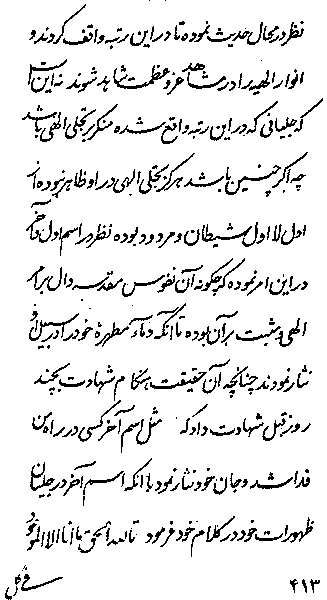 نظر در مجال حدیث نموده تا در این رتبه واقف گردند و
انوار الهیه را در مشاهد عز و عظمت شاهد شوند نه این است
که جلیانی که در این رتبه واقع شده منکر بر تجلی الهی باشد
چه اگر چنین باشد هرگز تجلی الهی در او ظاهر نبوده از
اول لا اول شیطان و مردود بوده نظر در اسم اول و آخر
در این امر نموده که چگونه آن نفوس مقدسه دال بر امر
الهی و مثبت بر آن بوده تا آنکه دماء مطهرهٔ خود را در سبیل او
نثار نمودند چنانچه آن حقیقت هنگام شهادت بچند
روز قبل شهادت داد که مثل اسم آخر کسی در راه من
فدا نشد و جان خود نثار ننمود با آنکه اسم آخر در جلیان
ظهورات خود در کلام خود فرمود تالله الحق ما انا الا الموعود
فی کل
۴۱۳